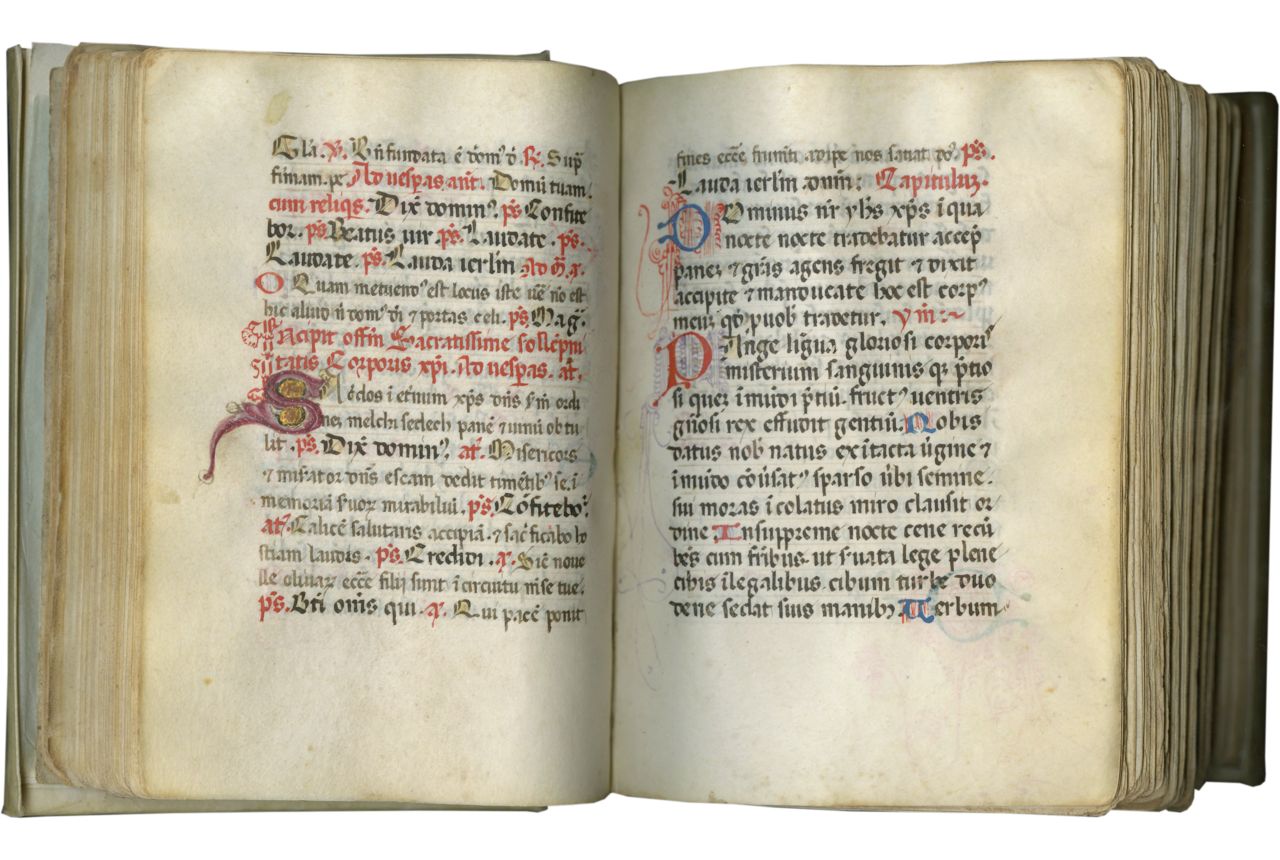 Glā. ℣. Bn̄ fundata ē domꝰ d̄. ℞. Sup̄
firmam. pe Ad vesꝑas ant. Domū tuam
cum reliqs. Dix̄ dominꝰ. p̄s Confite
bor. p̄s Beatus uir p̄s. Laudate. p̄s.
Laudate. p̄s. Lauda ierl̄m Ad
O Quam metuendꝰ est locus iste ue͞ nō est
hic aliud n̄ domꝰ di͞ et portas celi. p̄s. Mag̃.
Incipit offm̄ Sacratissime sollēpni
tatis Corporis xp̄i. Ad vesꝑas. at͞.
Sacerdos ī et̄num xp̄s dn̄s s͞m ordi
neꝫ melchisedech panē et uinū obtu
lit. p̄s. Dix̄ dominꝰ. at͞. Misericors
et mis͞ator dn̄s escam dedit timētibꝰ se. ī
memoriā suoꝝ mirabiliū. p̄s. Cōfiteboꝰ.
at͞. Calicē salutaris accipiā. et sac͞ficabo ho
stiam laudis. p̄s. Credidi. a͞. Sic̄ noue
lle oliuaꝝ ecc̄e filij sunt ī circuitu m̄se tue.
p̄s. Bt̄i om̄s qui. a͞. Qui pacē ponit
fines ecc̄e frum̄ti adipe nos satiat dꝰ. p̄s.
Lauda ierl̄m dnm̄: Capituluꝫ.
Dominus nr̄ yhs xp̄s ī qua
nocte nocte tradebatur accep̄
paneꝫ et gr̄as agens fregit et dixit
accipite et manducate hoc est corpꝰ
meuꝫ qd̄ ꝓ uob tradetur. ym̄:~
Pange līgua gloriosi corporiˢ
misterium sanguinis qꝫ p̄tio
si queꝫ ī mūdi p̄tiū. fructꝰ uentris
gn̄osi rex effudit gentiū. Nobis
datus nob̄ natus ex ītacta ūgine et
ī mūdo cōūsatꝰ sparso ūbi semine.
sui moras īcolatus miro clausit or
dine In suppreme nocte cene recū
bēs cum fr̄ibus. ut suata lege plene
cibis ī legalibus. cibum turbe duo
dene se dat suis manibꝫ Verbum